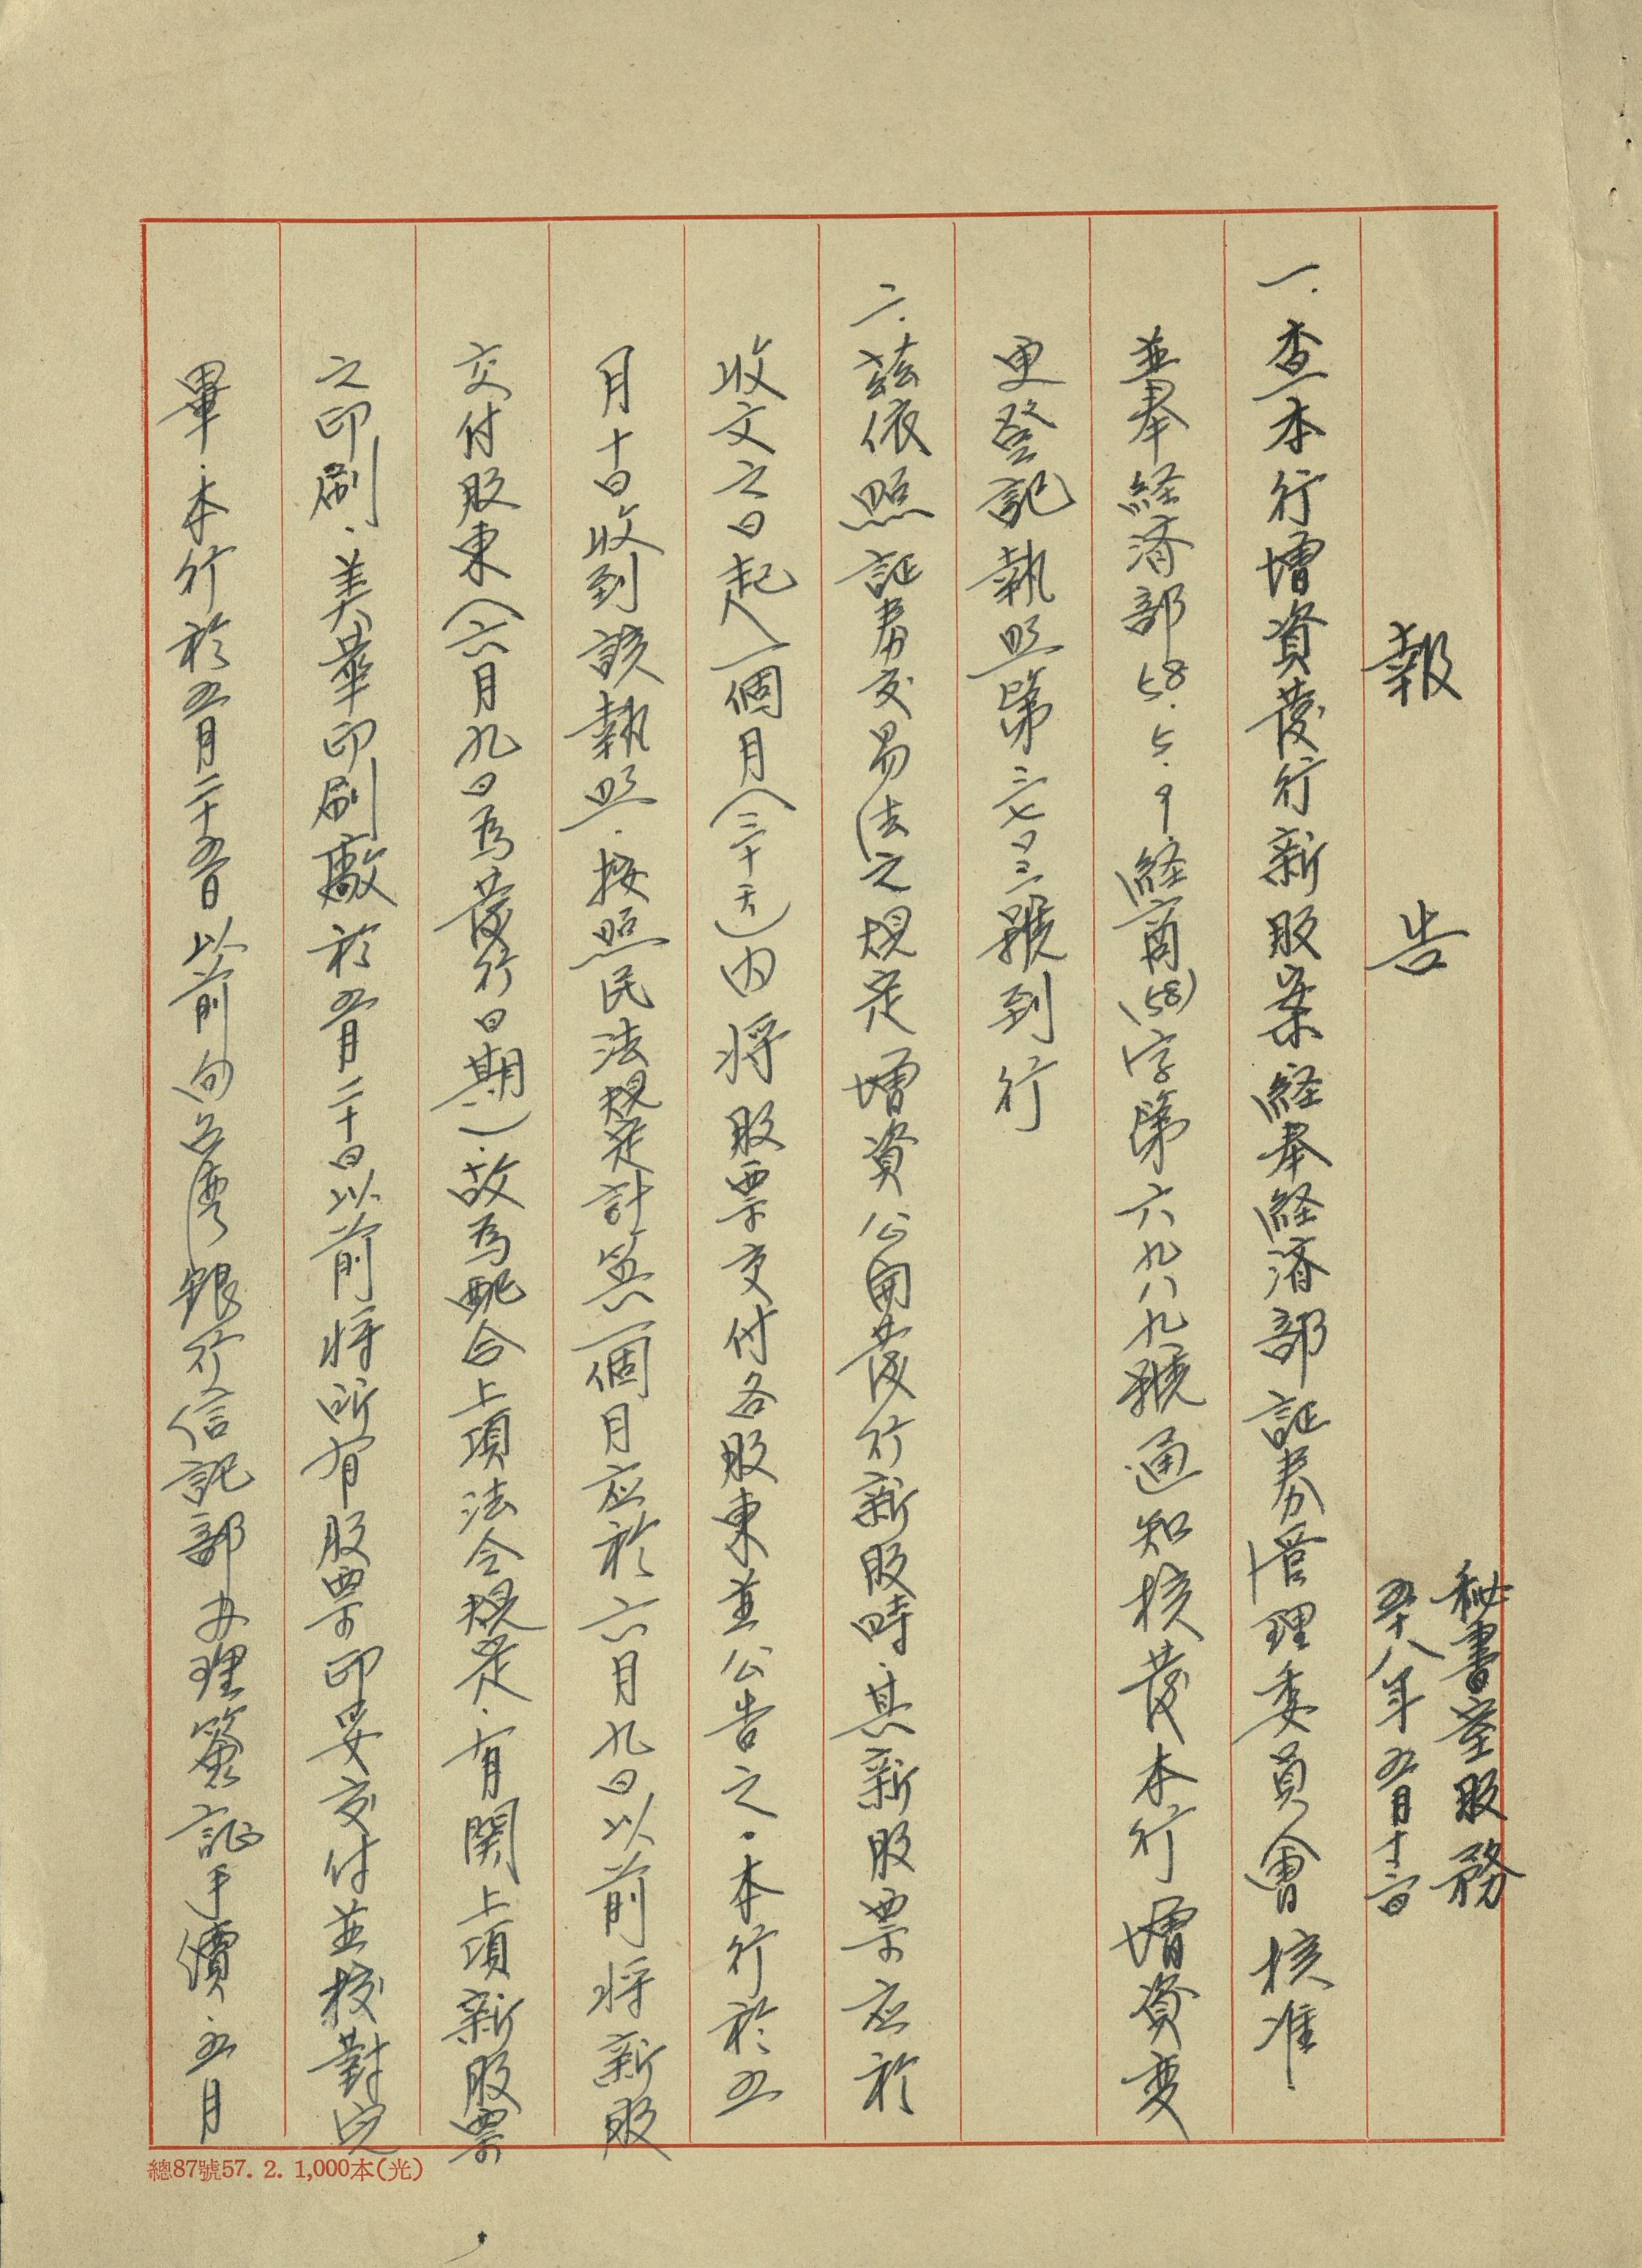 報告
秘書室股務
五十八年五月十三日
一.查本行增資發行新股案経奉経済部証券管理委員會核准.
並奉経済部58.5.9経商(58)字第六九八九號通知核發本行增資變
更登記執照第三七〇三號到行
二.茲依照証券交易法之規定增資公開發行新股時.其新股票应於
收文之日起一個月(三十天)內将股票交付各股東並公告之.本行於五
月十日收到該執照.按照民法規定計算一個月应於六月九日以前将新股
交付股東(六月九日為發行日期).故為配合上項法令規定.有関上項新股票
之印刷.美華印刷廠於五月二十日以前将所有股票印妥交付並校對完
畢.本行於五月二十五日以前向台湾銀行信託部办理簽証手續.五月
總87號57. 2. 1,000本(光)